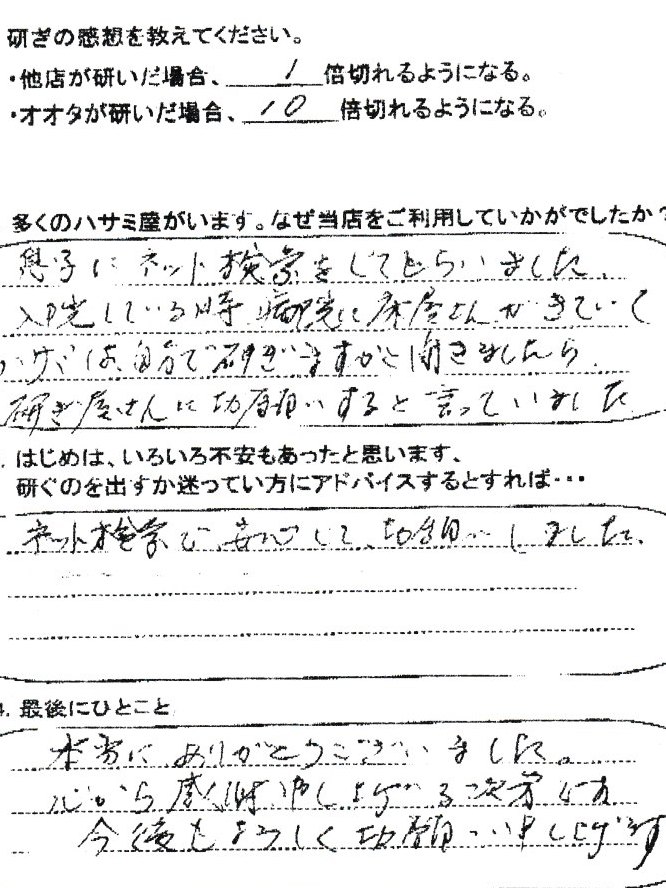 研ぎの感想を教えてください。
・他店が研いだ場合、 1 倍切れるようになる。
・オオタが研いだ場合、 10 倍切れるようになる。
多くのハサミ屋がいます。なぜ当店をご利用していかがでしたか?
息子にネット検索をしてもらいました、
入院している時 病院に床屋さんがきていて
ハサミは、自分で研ぎますかと聞きましたら、
研ぎ屋さんにお願いすると言っていました
はじめは、いろいろ不安もあったと思います、
研ぐのを出すか迷ってい方にアドバイスするとすれば・・・
ネット検索で、安心して、お願いしました、
最後にひとこと
本当にありがとうございました。
心から感謝申し上げる次第です
今後もよろしくお願い申し上げます